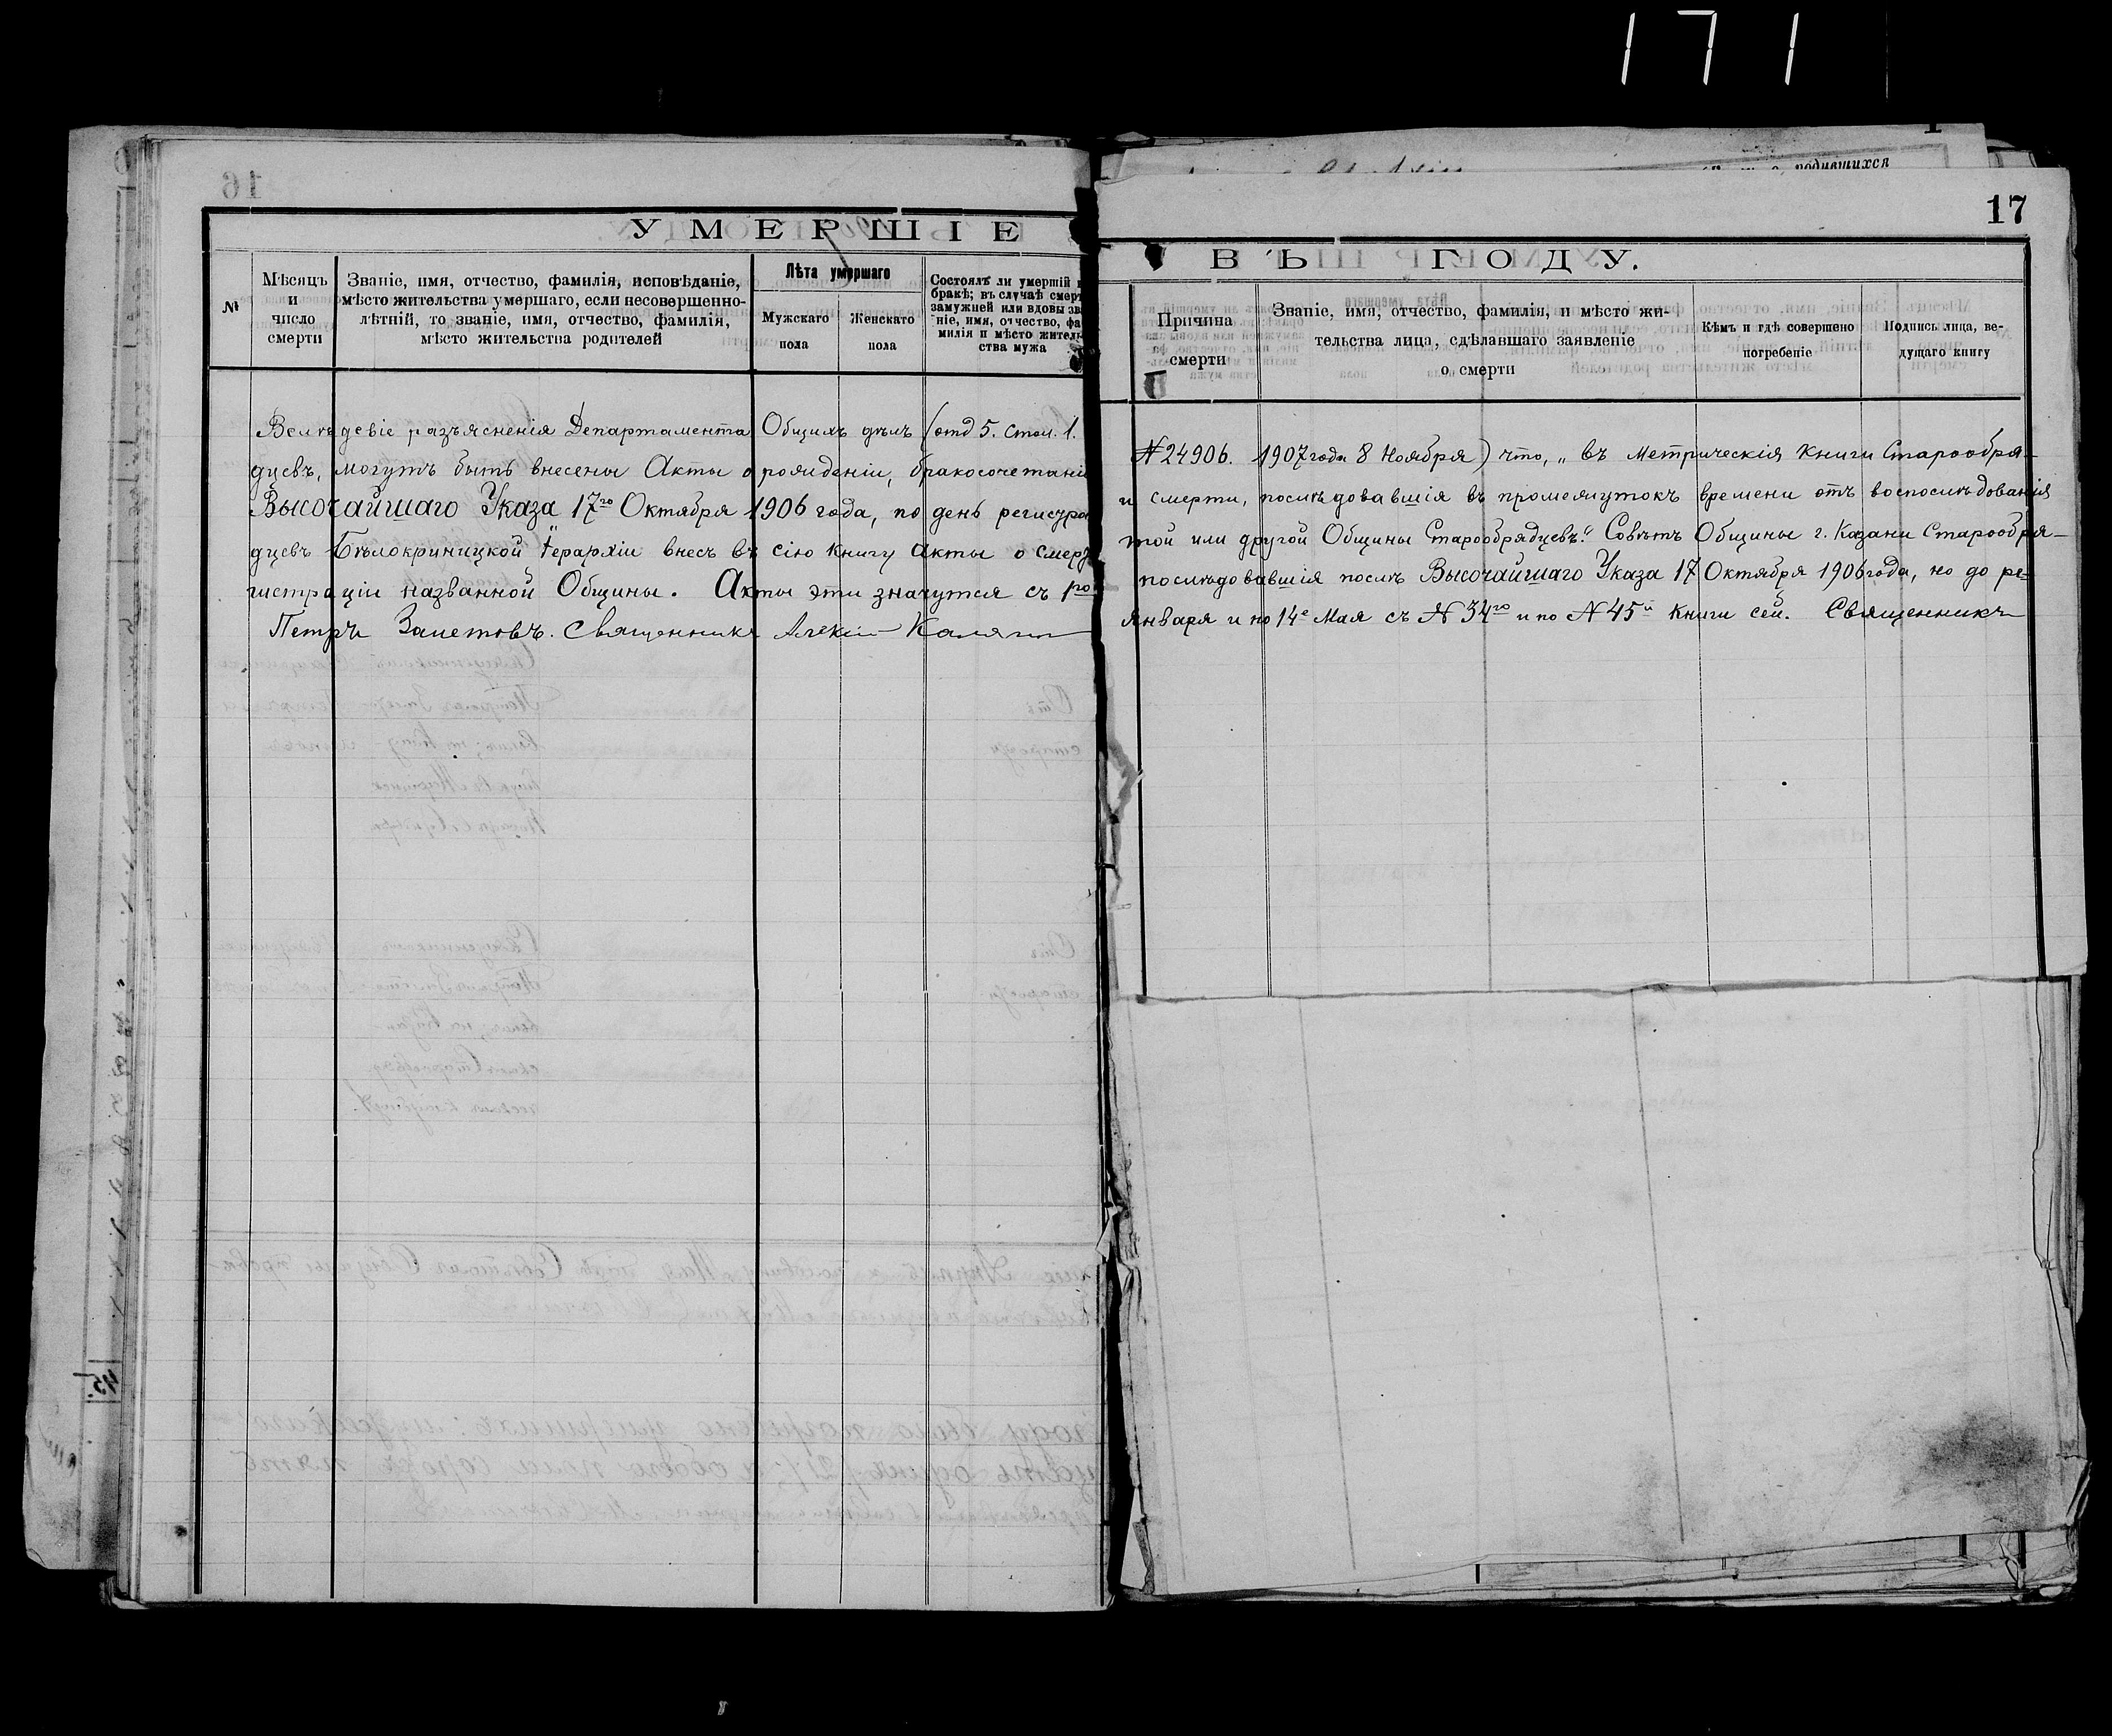 171
УМЕРШІЕ
№
Мѣсяцъ
и
число
смерти
Званіе, имя, отчество, фамилія, исповѣданіе,
мѣсто жительства умершаго, если несовершенно-
лѣтній, то званіе, имя, отчество, фамилія,
мѣсто жительства родителей
Лѣта умершаго
Мужскаго
пола
Женскаго
пола
Состоялъ ли умершій
бракѣ; въ случаѣ смерт
замужней или вдовы зва
ніе, имя, отчество, фа
милія и мѣсто житель
ства мужа
17
ВЪ ГОДУ.
Причина
смерти
Званіе, имя, отчество, фамилія, и мѣсто жи-
тельства лица, сдѣлавшаго заявленіе
о смерти
Кѣмъ и гдѣ совершено
погребеніе
Подпись лица, ве-
дущаго книгу
Вслѣдсвіе разъясненія Департамента Общихъ дѣлъ (отд 5. стол. 1. № 24906. 1907 года 8 Ноября) что, „въ Метрическія Книги Старообря-
дцевъ, могутъ быть внесены Акты о рожденіи, бракосочетаніи и смерти, послѣдовавшія въ промежутокъ времени отъ воспослѣдованія
Высочайшаго Указа 17го Октября 1906 года, по день регистра той или другой Общины Старообрядцевъ." Совѣтъ Общины г. Казани Старообря-
дцевъ Бѣлокриницкой Іерархіи внесъ въ сію книгу акты о смерт послѣдовавшія послѣ Высочайшаго Указа 17 Октября 1906 года, но до ре-
гистраціи названной Общины. Акты эти значутся съ 1го Января и по 14е Мая съ № 34го и по № 45й книги сей. Священникъ
Петръ Залетовъ. Священникъ Алексій Калягин